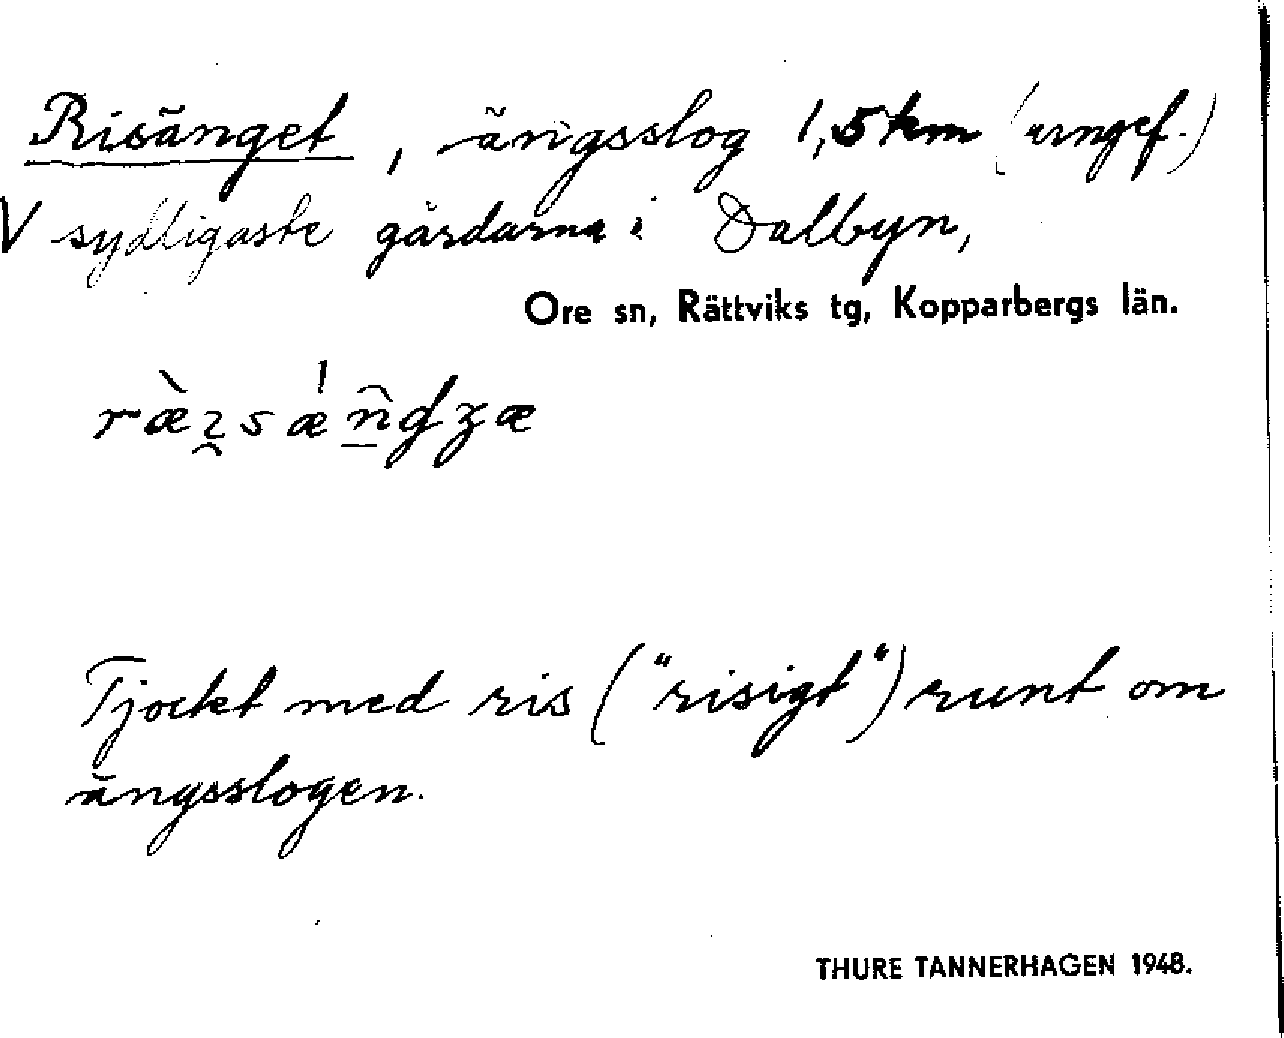 Risänget, ängsslog 1,5 km (ungef.)
V sydligaste gårdarna i Dalbyn,
Ore sn, Rättviks tg, Kopparbergs län.
Tjockt med ris ("risigt") runt om
ängsslogen.
THURE TANNERHAGEN 1948.